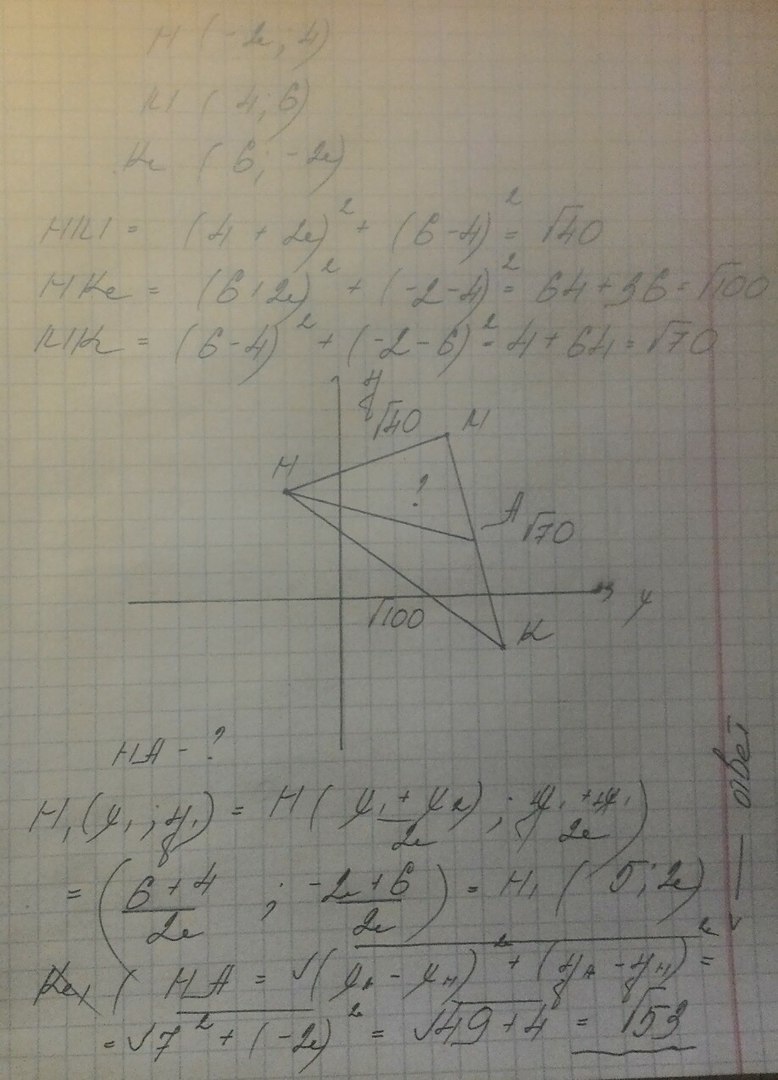 H (-2; 4)
M (4; 6)
K (6; -2)
HM = (4 + 2)² + (6-4)² = √40
HK = (6+2)² + (-2-4)² = 64+36 = √100
MK = (6-4)² + (-2-6)² = 4+64 = √70
y
√40 M
H
?
A √70
x
√100 K
HA - ?
ответ
H₁(x₁; y₁) = H(x₁ + x₂/2; y₁ + y₁/2)
= (6+4/2 ; -2+6/2) = H₁ (5; 2)
HA = √(xA - xH)² + (yA - yH)² =
= √7² + (-2)² = √49+4 = √53